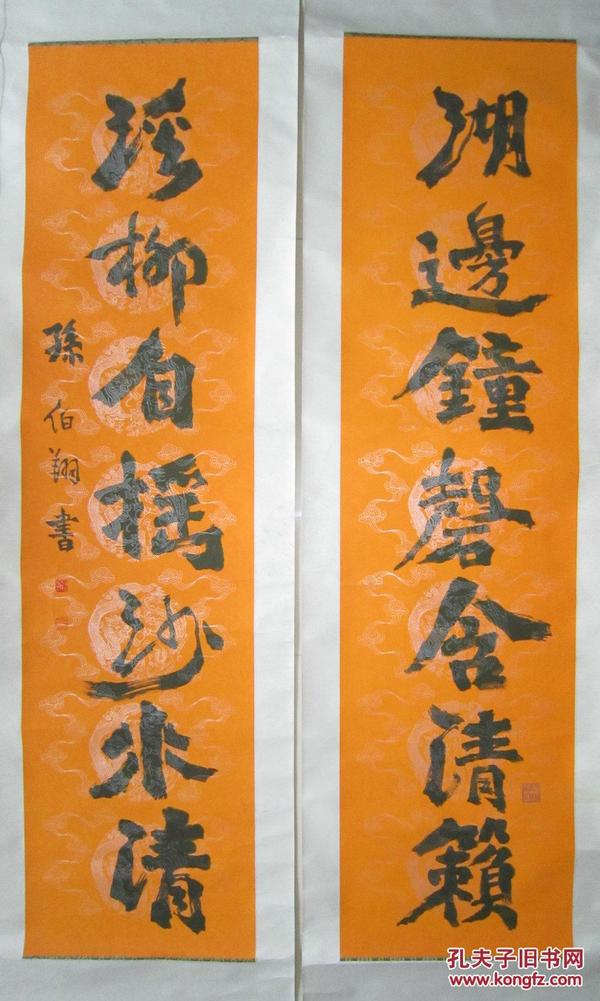 湖邊鐘磬含清籟
溪柳自搖沙水清
孫伯翔書
孔夫子旧书网
www.kongfz.com